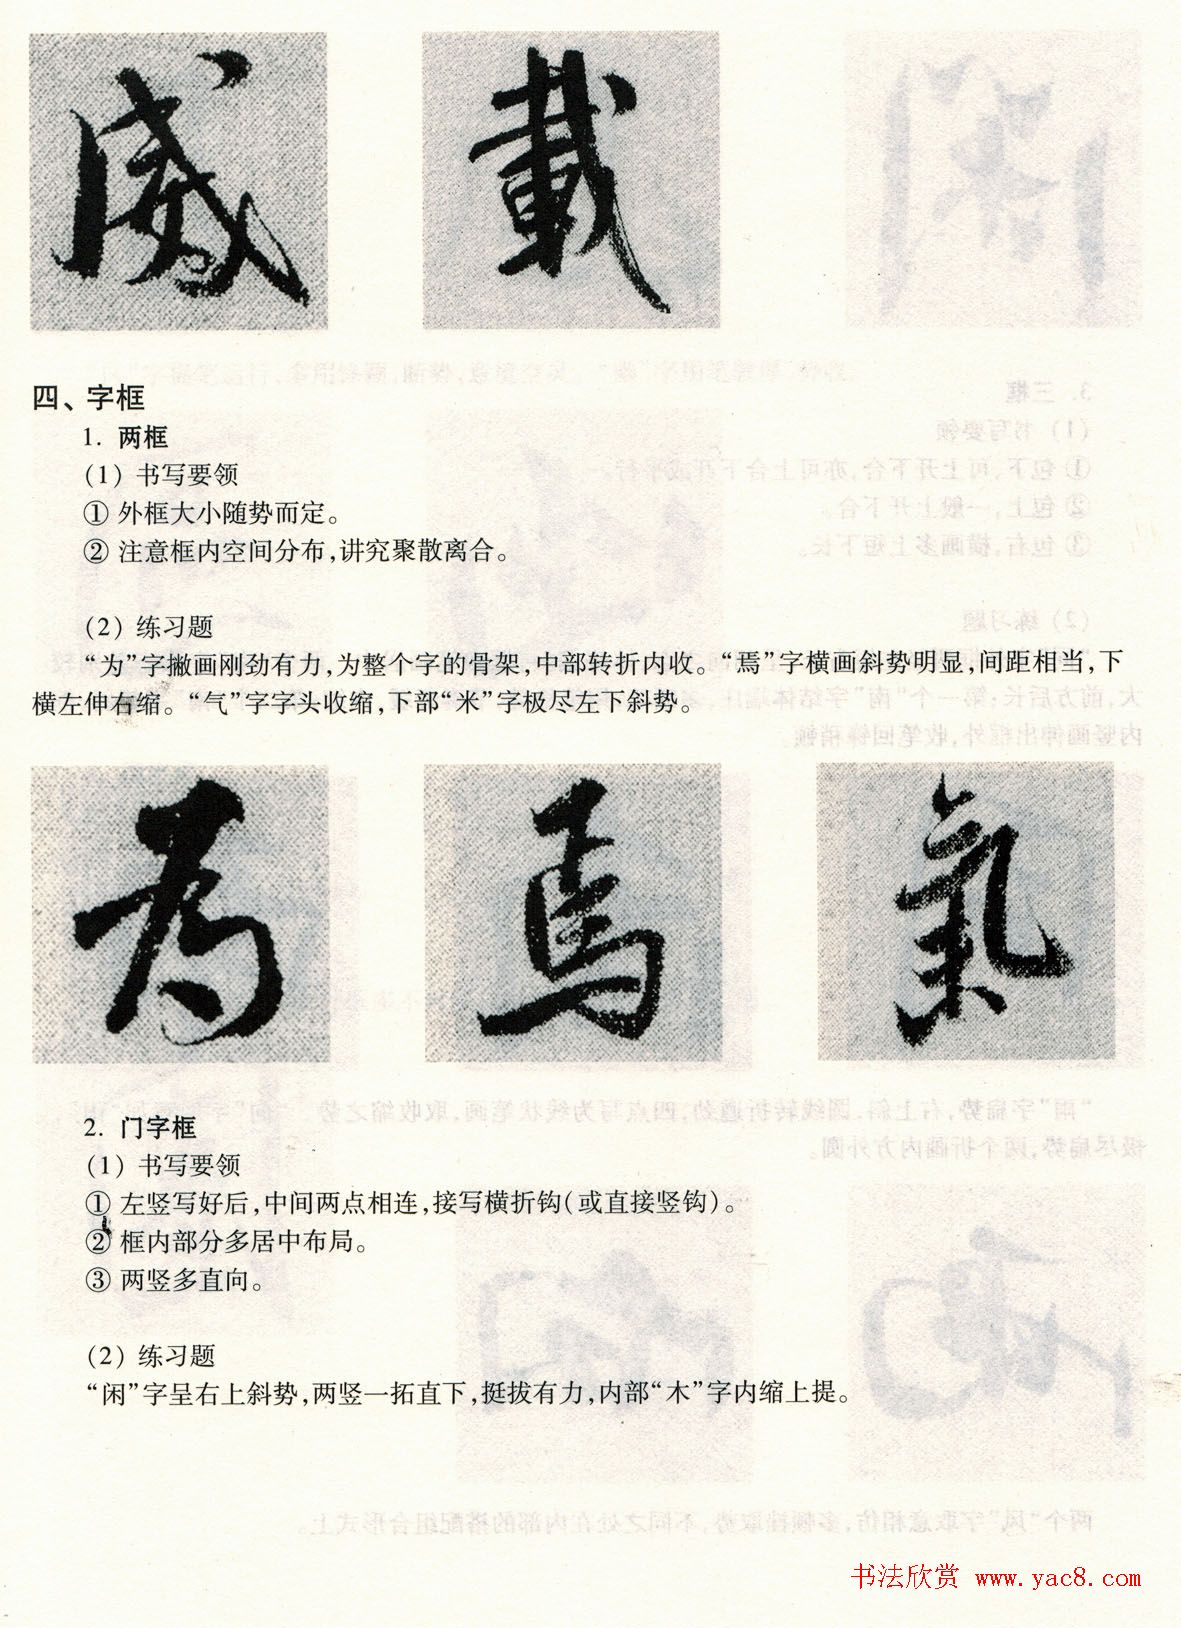 威 載
四、字框
1. 两框
(1) 书写要领
① 外框大小随势而定。
② 注意框内空间分布,讲究聚散离合。
(2) 练习题
“为”字撇画刚劲有力,为整个字的骨架,中部转折内收。“焉”字横画斜势明显,间距相当,下
横左伸右缩。“气”字字头收缩,下部“米”字极尽左下斜势。
為 焉 氣
2. 门字框
(1) 书写要领
① 左竖写好后,中间两点相连,接写横折钩(或直接竖钩)。
② 框内部分多居中布局。
③ 两竖多直向。
(2) 练习题
“闲”字呈右上斜势,两竖一拓直下,挺拔有力,内部“木”字内缩上提。
书法欣赏 www.yac8.com